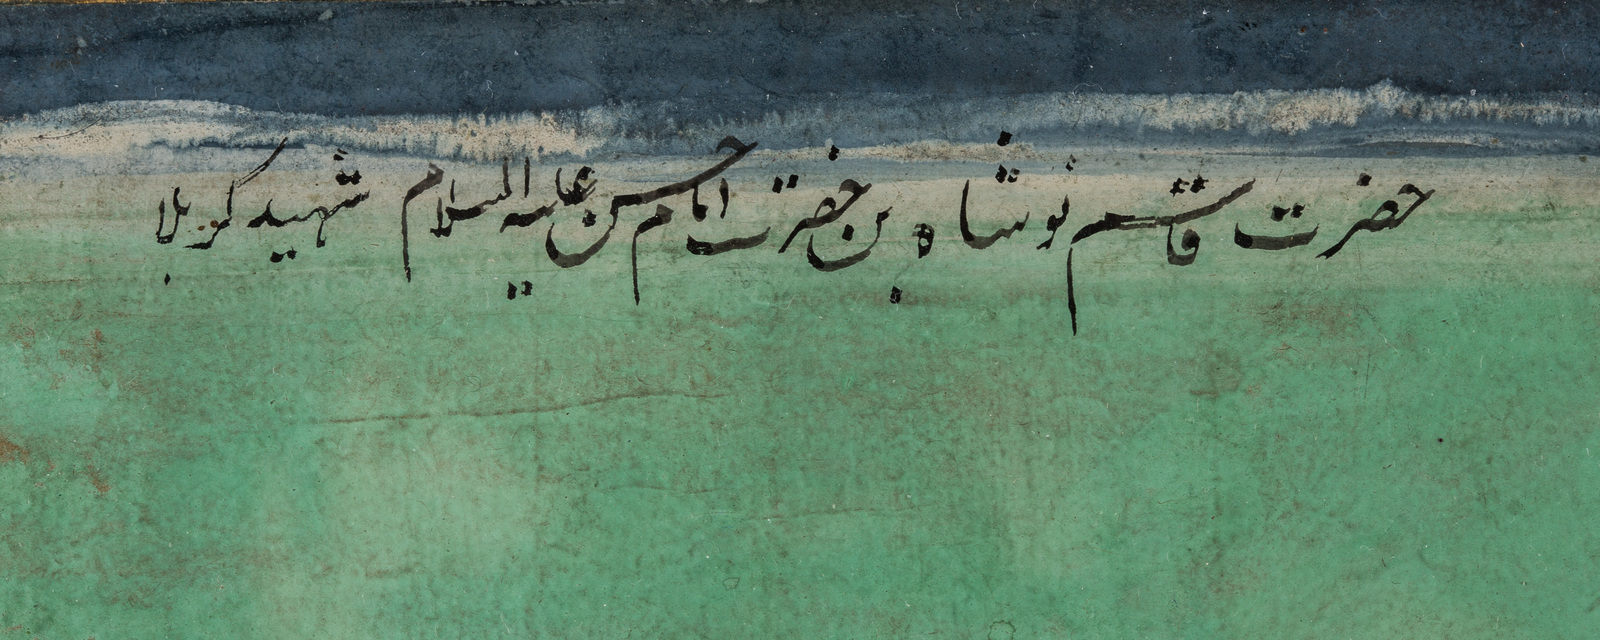 حضرت قاسم نوشاه بن حضرت امام حسن علیه السلام شهید کربلا